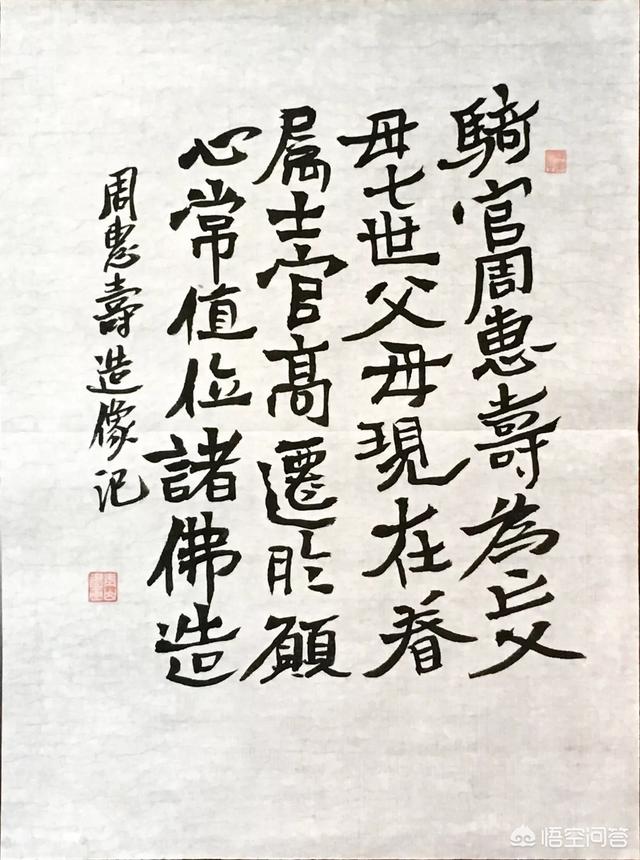 騎官周惠壽為亡父
母七世父母現在眷
屬士官高遷所願
心常值位諸佛造
周惠壽造像记
悟空问答